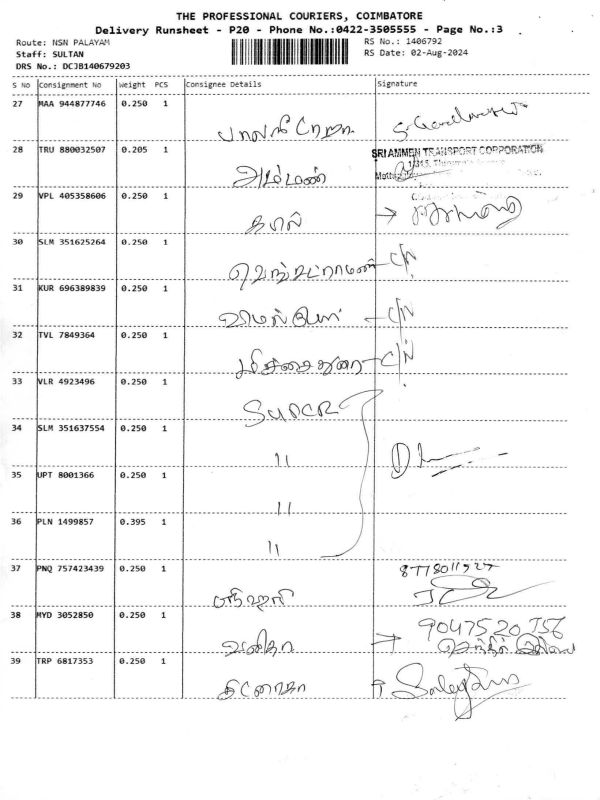 THE PROFESSIONAL COURIERS, COIMBATORE
Delivery Runsheet - P20 - Phone No.:0422-3505555 - Page No.:3
Route: NSN PALAYAM
RS No.: 1406792
Staff: SULTAN
RS Date: 02-Aug-2024
DRS No.: DCJB140679203
S No Consignment No Weight PCS Consignee Details Signature
27 MAA 944877746 0.250 1
28 TRU 880032507 0.205 1 அம்மன் SRI AMMEN TRANSPORT CORPORATION
29 VPL 405358606 0.250 1
30 SLM 351625264 0.250 1 வெங்கட்ராமன் C/N
31 KUR 696389839 0.250 1 C/N
32 TVL 7849364 0.250 1 பிச்சைதுரை C/N
33 VLR 4923496 0.250 1 SUPER
34 SLM 351637554 0.250 1 11
35 UPT 8001366 0.250 1 11
36 PLN 1499857 0.395 1 11
37 PNQ 757423439 0.250 1
38 MYD 3052850 0.250 1 வனிதா → 9047520756
39 TRP 6817353 0.250 1